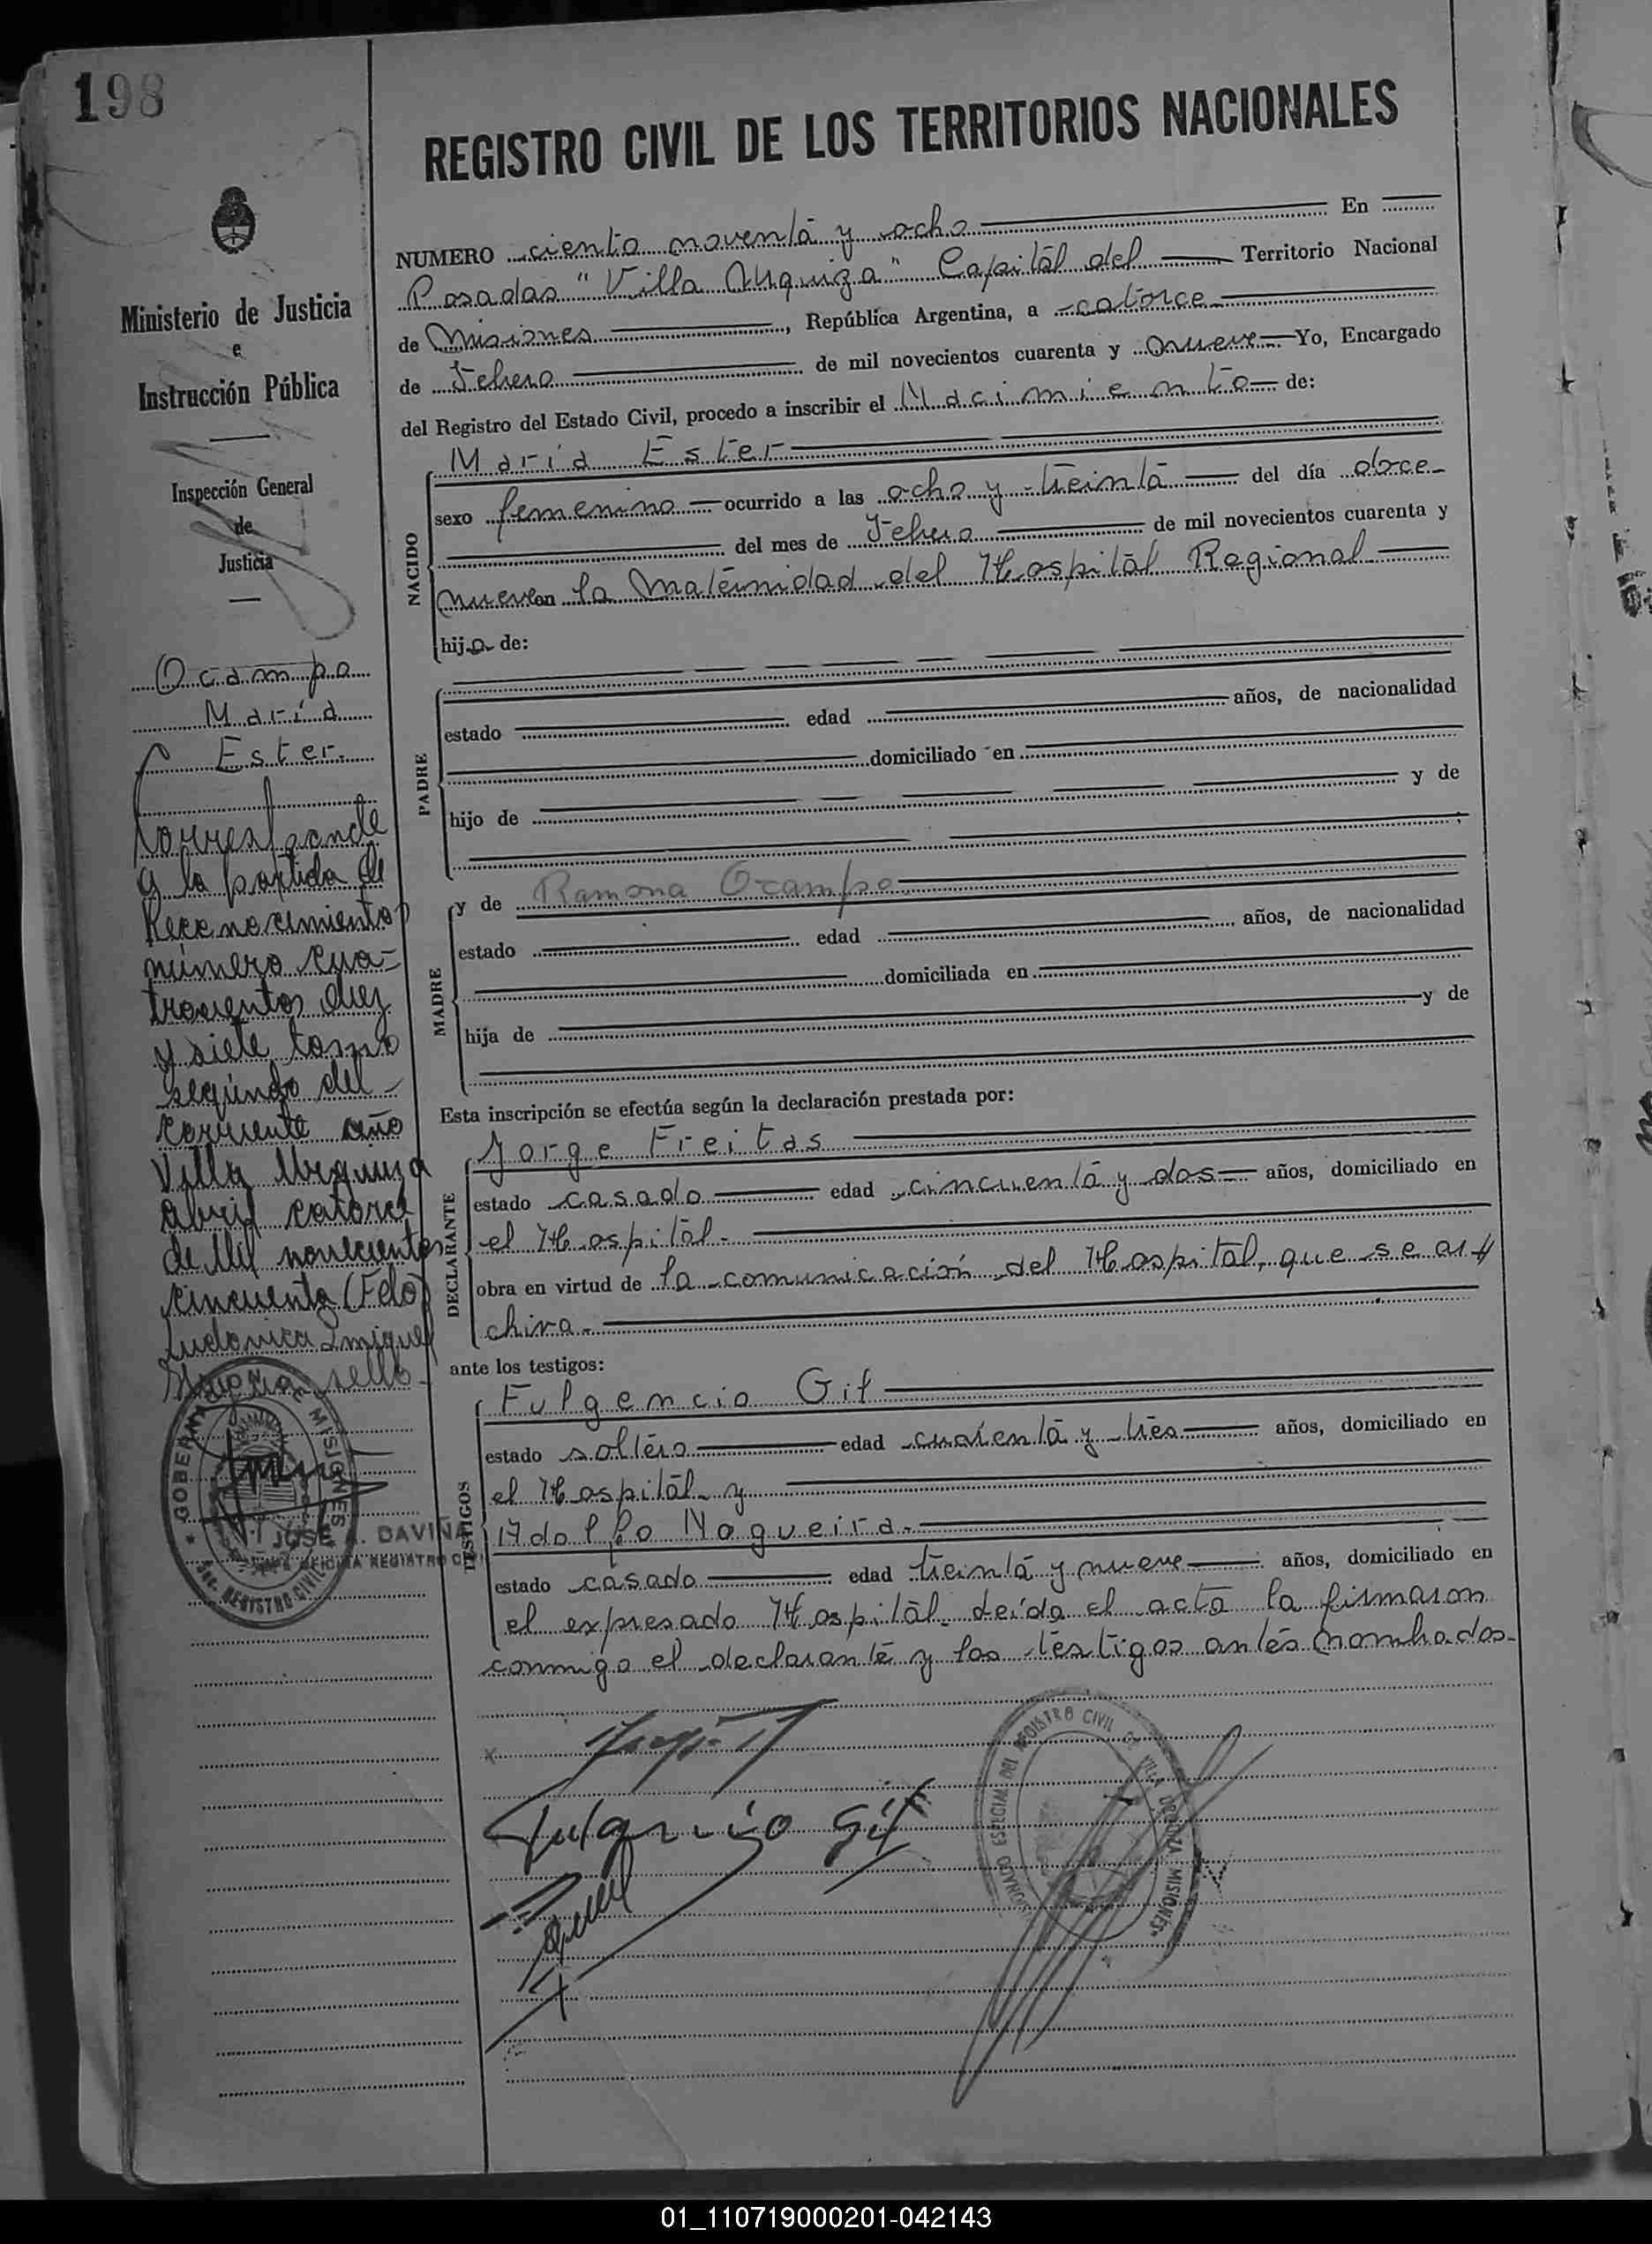 198
REGISTRO CIVIL DE LOS TERRITORIOS NACIONALES
NUMERO ciento noventa y ocho En
Posadas "Villa Urquiza" Capital del Territorio Nacional
de Misiones, República Argentina, a catorce
de Febrero de mil novecientos cuarenta y nueve Yo, Encargado
del Registro del Estado Civil, procedo a inscribir el Nacimiento de:
NACIDO
María Ester
sexo femenino ocurrido a las ocho y treinta del día doce
del mes de Febrero de mil novecientos cuarenta y
nueve en la Maternidad del Hospital Regional
hija de:
PADRE
estado edad años, de nacionalidad
domiciliado en
hijo de y de
;
MADRE
y de Ramona Ocampo
estado edad , años, de nacionalidad
domiciliada en
hija de y de
Esta inscripción se efectúa según la declaración prestada por:
DECLARANTE
Jorge Freitas
estado casado edad cincuenta y dos años, domiciliado en
el Hospital.
obra en virtud de la comunicación del Hospital, que se ar
chiva.
ante los testigos:
TESTIGOS
Fulgencio Gil
estado soltero edad cuarenta y tres años, domiciliado en
el Hospital y
Adolfo Nogueira.
estado casado edad treinta y nueve años, domiciliado en
el expresado Hospital. Leída el acta la firmaron
conmigo el declarante y los testigos antes nombrados.
Fulgencio Gil
REGISTRO CIVIL DE VILLA URQUIZA MISIONES
Ministerio de Justicia
e
Instrucción Pública
Inspección General
de
Justicia
Ocampo
María
Ester.
Corresponde
a la partida de
Reconocimientos
número cua-
trocientos diez
y siete tomo
segundo del
corriente año
Villa Urquiza
abril catorce
de Mil novecientos
cincuenta (Fdo)
sello.
GOBERNACION DE MISIONES
REGISTRO CIVIL
JOSE A. DAVIÑA
OFICINA REGISTRO CIVIL
01_110719000201-042143